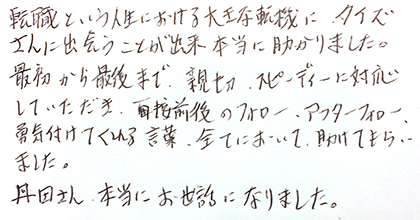 転職という人生における大きな転機に、タイズ
さんに出会うことが出来、本当に助かりました。
最初から最後まで、親切、スピーディーに対応
していただき、面接前後のフォロー、アフターフォロー、
勇気付けてくれる言葉、全てにおいて、助けてもらい
ました。
丹田さん、本当にお世話になりました。